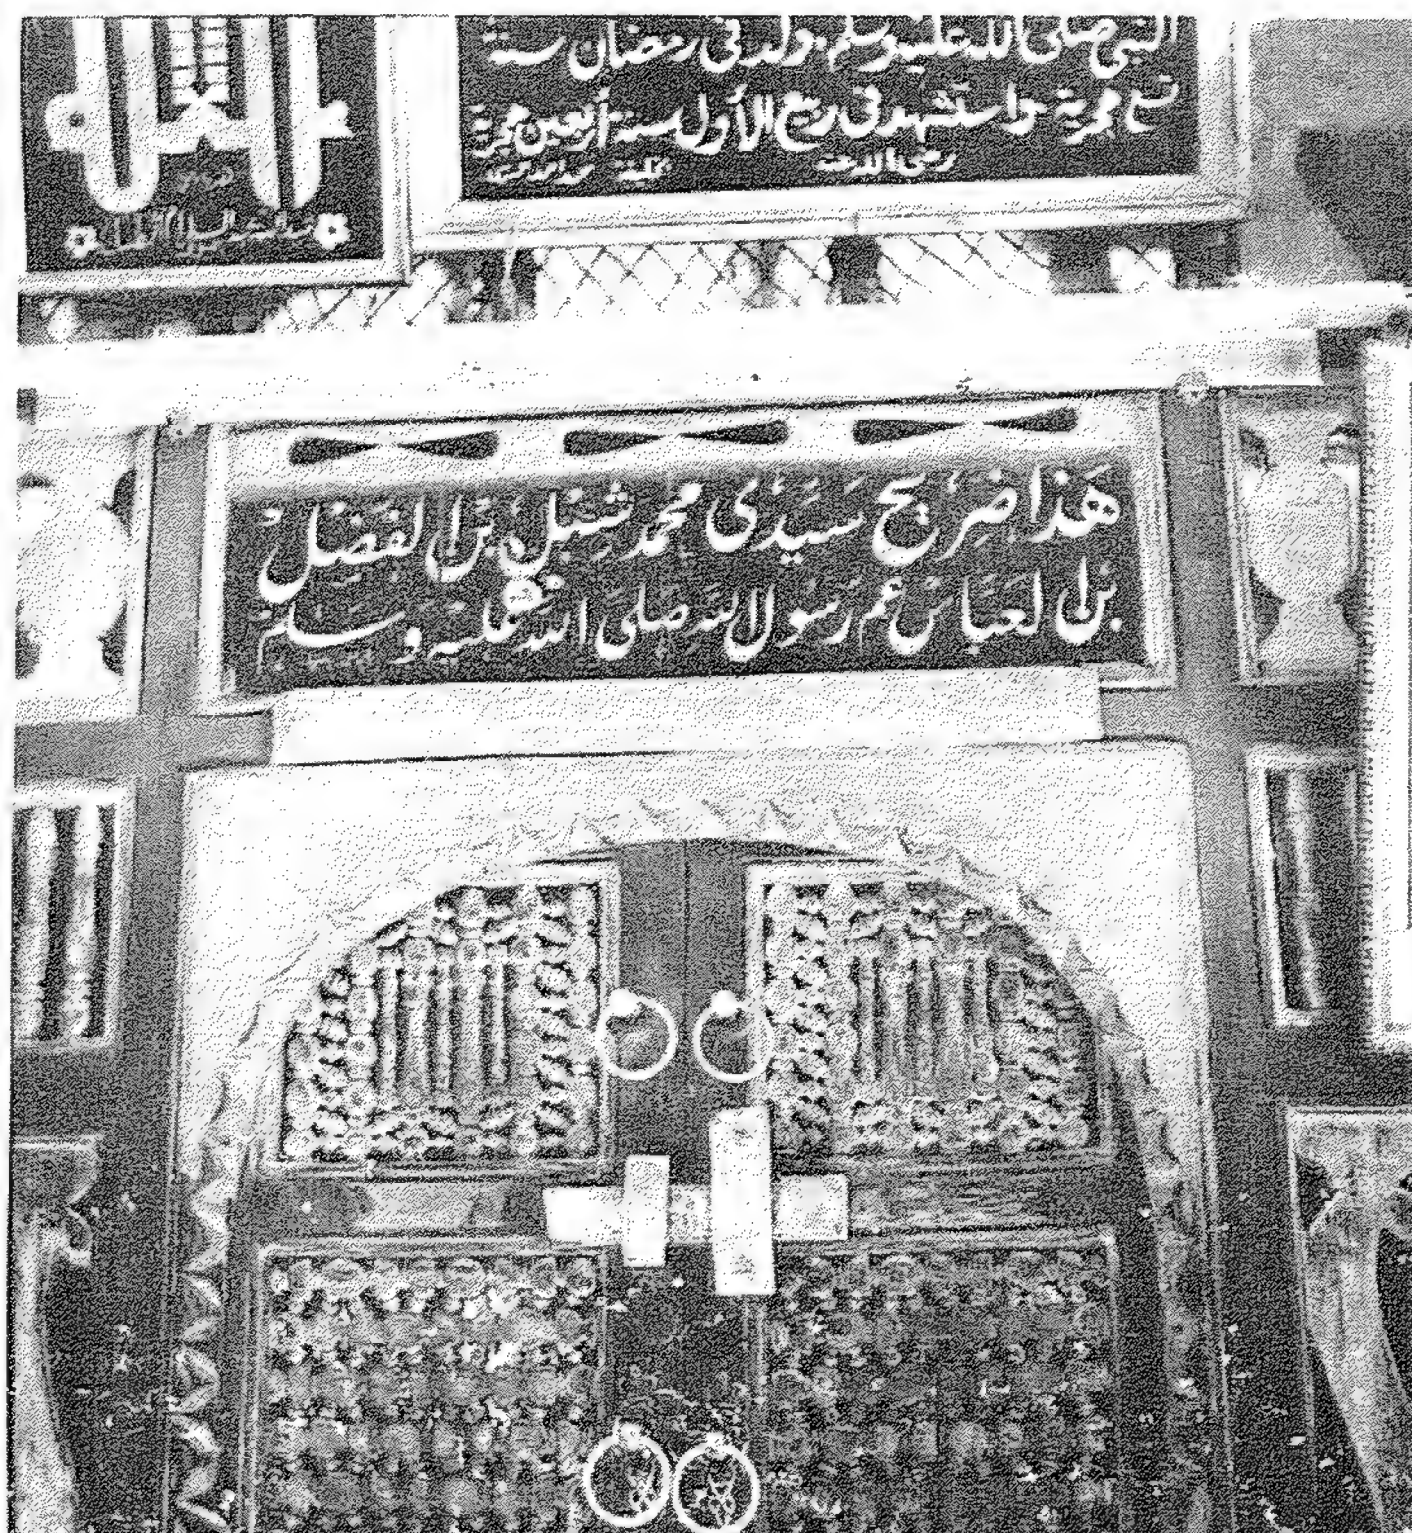 النبي صلى الله عليه وسلم ولد في رمضان سنة
تسع هجرية واستشهد في ربيع الأول سنة أربعين هجرية
رضي الله عنه
هَذا ضَرِيح سَيِّدى محمد شِبْل بْن الفَضْل
بْن العَبَّاسْ عَم رَسُول الله صَلى الله عَليه وَسَلمْ